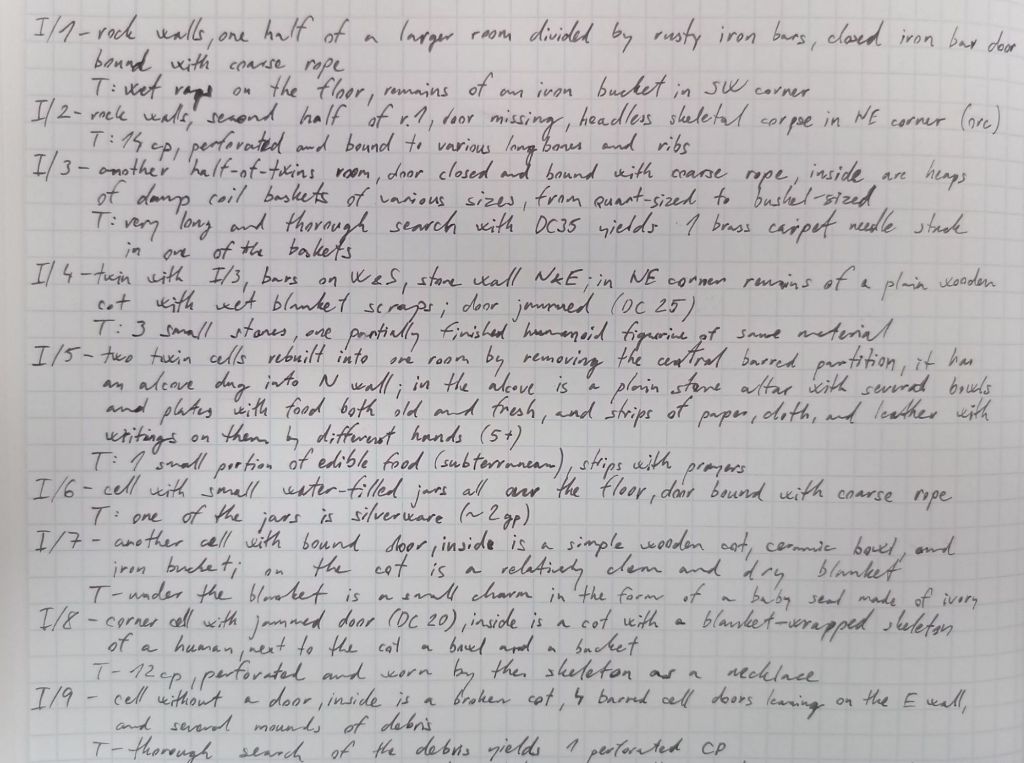 I/1 - rock walls, one half of a larger room divided by rusty iron bars, closed iron bar door
bound with coarse rope
T: wet rags on the floor, remains of an iron bucket in SW corner
I/2 - rock walls, second half of r. 1, door missing, headless skeletal corpse in NE corner (orc)
T: 14 cp, perforated and bound to various long bones and ribs
I/3 - another half-of-twins room, door closed and bound with coarse rope, inside are heaps
of damp coil baskets of various sizes, from quart-sized to bushel-sized
T: very long and thorough search with DC35 yields 1 brass carpet needle stuck
in one of the baskets
I/4 - twin with I/3, bars on W&S, stone wall N&E; in NE corner remains of a plain wooden
cot with wet blanket scraps; door jammed (DC 25)
T: 3 small stones, one partially finished humanoid figurine of same material
I/5 - two twin cells rebuilt into one room by removing the central barred partition, it has
an alcove dug into N wall; in the alcove is a plain stone altar with several bowls
and plates with food both old and fresh, and strips of paper, cloth, and leather with
writings on them by different hands (5+)
T: 1 small portion of edible food (subterranean), strips with prayers
I/6 - cell with small water-filled jars all over the floor, door bound with coarse rope
T: one of the jars is silverware (~2gp)
I/7 - another cell with bound door, inside is a simple wooden cot, ceramic bowl, and
iron bucket; on the cot is a relatively clean and dry blanket
T - under the blanket is a small charm in the form of a baby seal made of ivory
I/8 - corner cell with jammed door (DC 20), inside is a cot with a blanket-wrapped skeleton
of a human, next to the cot a bowl and a bucket
T - 12 cp, perforated and worn by the skeleton as a necklace
I/9 - cell without a door, inside is a broken cot, 4 barred cell doors leaning on the E wall,
and several mounds of debris
T - thorough search of the debris yields 1 perforated CP